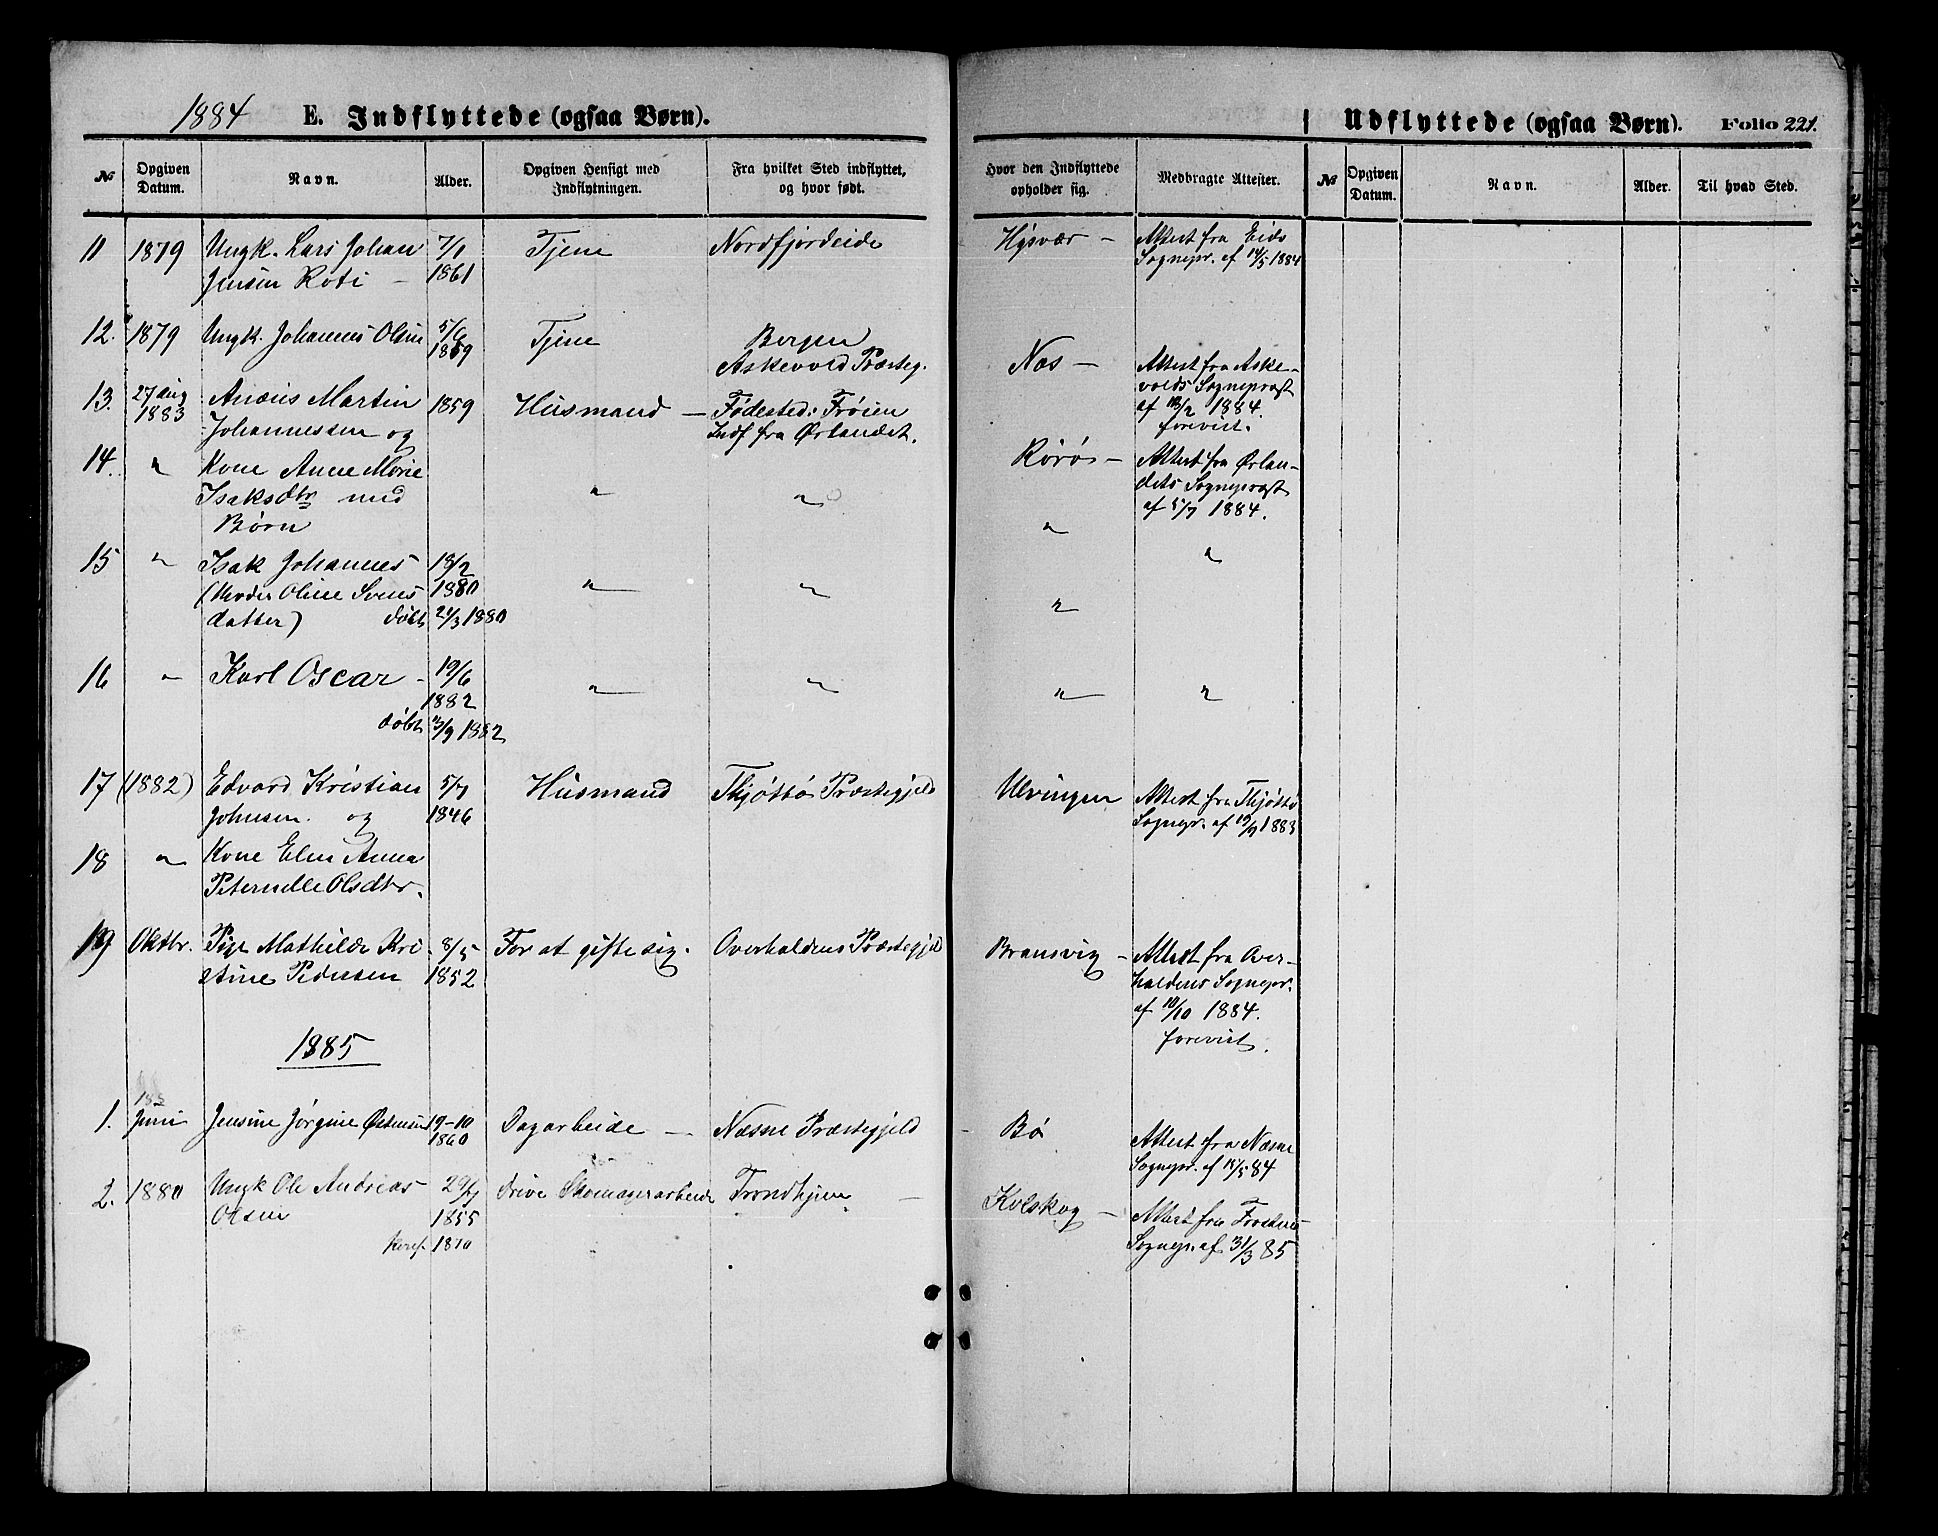 1884 E. Indflyttede (ogsaa Børn).
Udflyttede (ogsaa Børn). Folio 221.
№ Opgiven Datum. Navn. Alder. Opgiven Hensigt med Indflytningen. Fra hvilket Sted indflyttet, og hvor født. Hvor den Indflyttede opholder sig. Medbragte Attester. № Opgiven Datum. Navn. Alder. Til hvad Sted.
11 1879 Ungk. Lars Johan 7/1 Tjene Nordfjordeide Hysvær - Attest fra Eids
Jensen Roti - 1861 Sognepr. af 14/5 1884
12. 1879 Ungk. Johannes Olsen 5/6 Tjene Bergen
1859 Askevold Præsteg. Næs - Attest fra Aske-
volds Sogneprest
af 18/2 1884.
forevist.
13. 27 Aug Anæus Martin 1859 Husmand - Fødested: Frøien
1883 Johannessen og Indf fra Ørlandet.
Rørøs - Attest fra Ørlan-
dets Sogneprest
af 5/7 1884.
14. " Kone Anne Marie
Isaksdtr med " "
Børn "
15 " Isak Johannes 18/2 "
(Moder Oline Svens 1880 " "
datter) døbt 21/3 1880 "
16 " Karl Oscar - 19/6 " " " "
1882
døbt 13/9 1882
17 (1882) Edvard Kristian 5/7 Husmand Thjøttø Præstegjeld Ulvingen Attest fra Thjøttø
Johnsen og 1846 Sognepr. af 19/9 1883
18 " Kone Elen Anna
Peternelle Olsdtr.
19 Oktbr. Pige Mathilde Kri 8/5 For at gifte sig. Overhaldens Præstegjeld Bransvig - Attest fra Over-
stine Pedersen 1852 haldens Sognepr.
af 10/10 1884.
forevist.
1885
1. Juni Jensine Jørgine Østensen 19-10 Dagarbeide - Næsne Præstegjeld - Bø Attest fra Næsne
1860 Sognepr. af 15/5 84
2. 1880 Ungk Ole Andreas 29/7 Drive Skomagerarbeide Trondhjem - Kolskog - Attest fra Frostens
Olsen 1855 Sognepr. af 31/3 85
1870